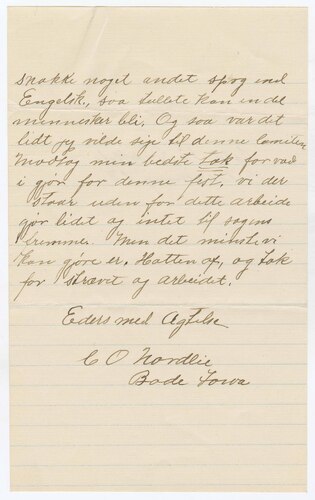 snakke noget andet sprog end
Engelsk, saa tullete kan en del
mennesker bli. Og saa var det
lidt jeg vilde sige til denne Comiteen
Modtag min bedste tak for vad
i gjør for denne fest. vi der
staar uden for dette arbeide
gjør lidet ag intet til sagens
fremme. Men det minste vi
kan gjøre er. Hatten af, og tak
for strævet og arbeidet.
Eders med Agtelse
C O Nordlie
Bode Iowa